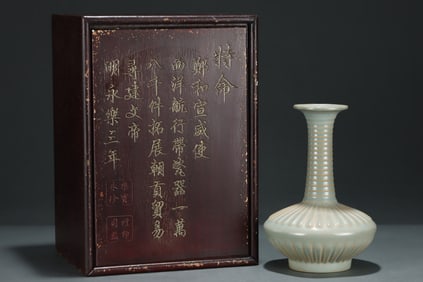 特命
鄭和宣威使
南洋航行帶瓷器一萬
八千件拓展朝貢貿易
尋建文帝
明永樂三年